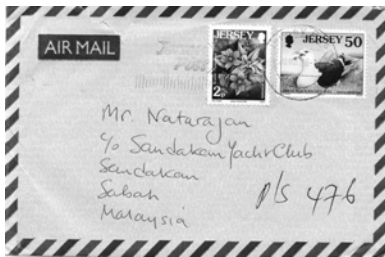 AIR MAIL
JERSEY
2p
JERSEY 50
Mr. Natarajan
c/o Sandakan Yacht Club
Sandakan
Sabah
Malaysia
p/s 476